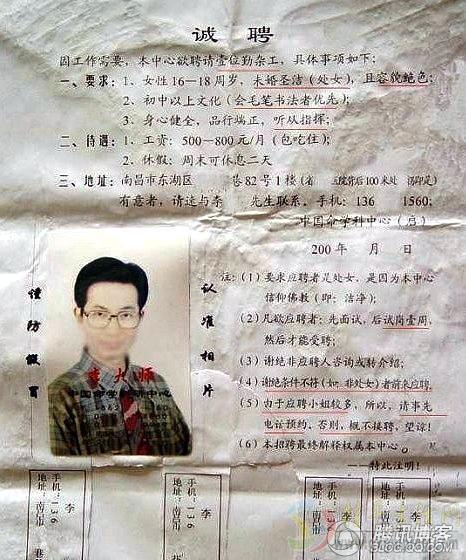 诚 聘
因工作需要，本中心欲聘请壹位勤杂工，具体事项如下：
一、要求：1、女性16—18周岁，未婚圣洁（处女），且容貌艳色；
2、初中以上文化（会毛笔书法者优先）；
3、身心健全，品行端正，听从指挥；
二、待遇：1、工资：500—800元/月（包吃住）；
2、休假：周末可休息二天
三、地址：南昌市东湖区 巷82号1楼（省 医院背后100米处
有意者，请速与李 先生联系。手机：136 1560；
中国命学科中心（启）
200 年 月 日
谨防假冒
认准相片
李大师
中国命学 中心
注：（1）要求应聘者是处女，是因为本中心
信仰佛教（即：洁净）；
（2）凡欲应聘者：先面试，后试岗壹周，
然后才能受聘；
（3）谢绝非应聘人咨询或转介绍；
（4）谢绝条件不符（如：非处女）者前来应聘。
（5）由于应聘小姐较多，所以，请事先
电话预约，否则，概不接聘，望谅！
（6）本招聘最终解释权属本中心。
——特此注明！
李
手机：136
地址：南昌市
李
手机：136
地址：南昌市
李
手机：136
地址：南昌市
李
手机：136
地址：南昌市
腾讯博客
BLOG.QQ.COM